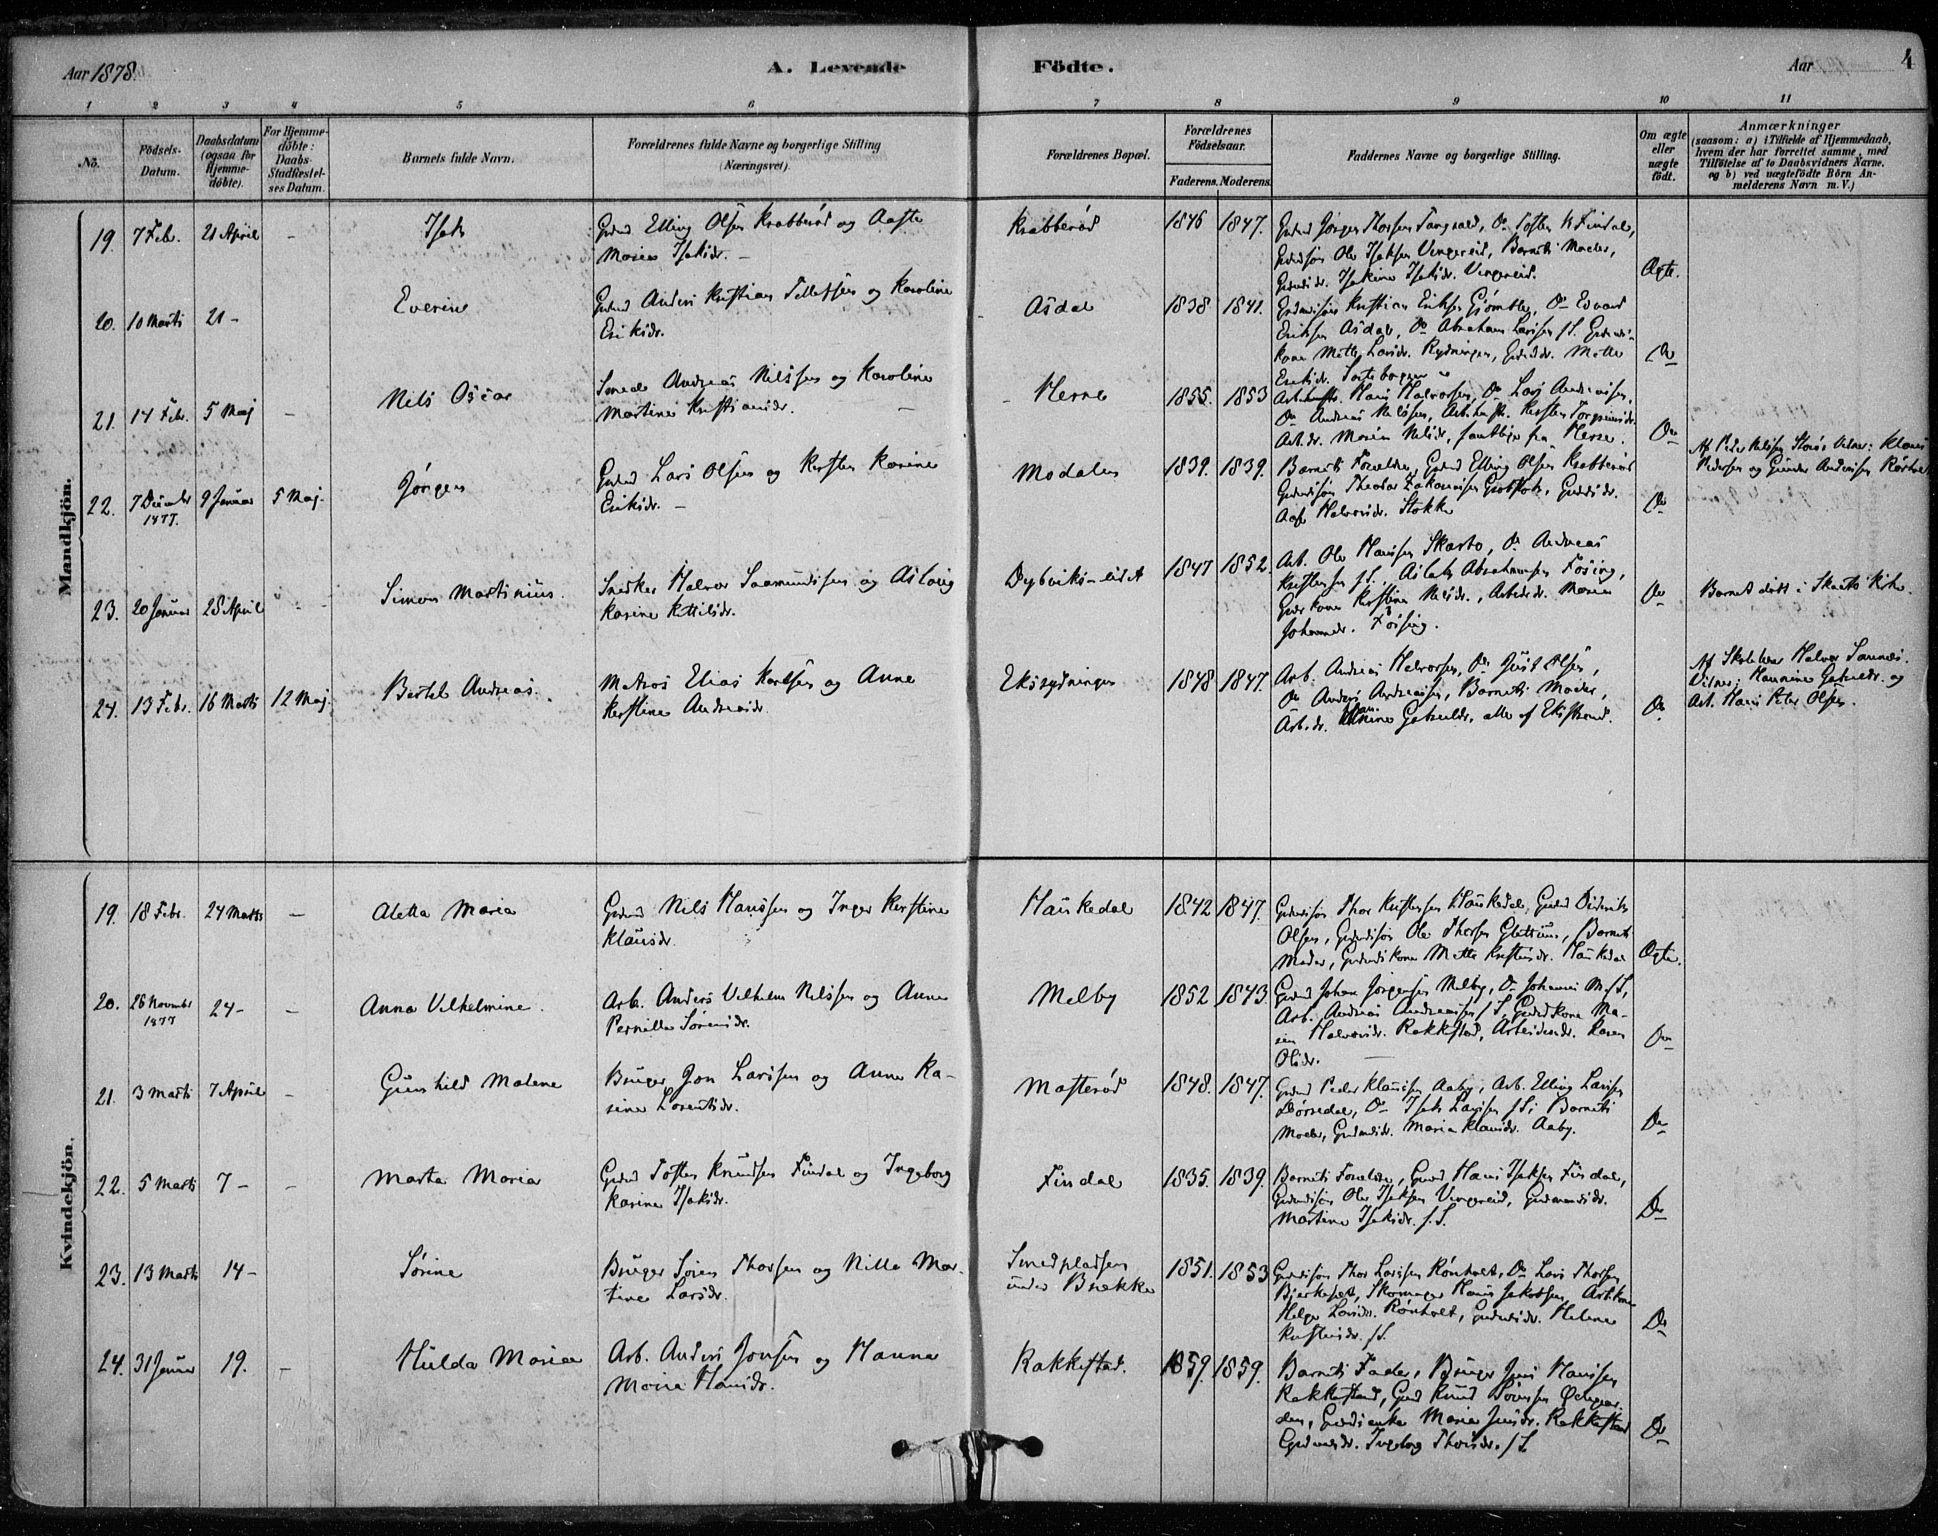 Aar 1878.
A. Levende
Födte.
Aar
4
1 2 3 4 5 6 7 8 9 10 11
No.
Födsels-
Datum.
Daabsdatum
(ogsaa for
Hjemme-
döbte).
For Hjemme-
döbte:
Daabs-
Stadfæstel-
ses Datum.
Barnets fulde Navn.
Forældrenes fulde Navne og borgerlige Stilling
(Næringsvei).
Forældrenes Bopæl.
Forældrenes
Födselsaar.
Faderens. Moderens.
Faddernes Navne og borgerlige Stilling.
Om ægte
eller
uægte
födt.
Anmærkninger
(saasom: a) i Tilfælde af Hjemmedaab,
hvem der har forrettet samme, med
Tilföielse af to Daabsvidners Navne.
og b) ved uægtefödte Börn An-
melderens Navn m. V.)
Mandkjön.
19. 7 Febr. 21 April -
Isak
Grdmd Elling Olsen Krabberød og Aaste
Maria Isaksdr. -
Krabberød
1846 1847.
Grdmd Jørgen Thorsen Tangvald, Do Tosten K Findal,
Grdmdsøn Ole Isaksen Vingereid, Barnets Moder,
Grdmdsdr. Isakine Isaksdr. Vingereid.
Ægte.
20. 10 Marts 21 -
Everine
Grdmd Anders Kristian Tellefsen og Karoline
Eriksdr.
Asdal
1838 1841.
Grdmdsøn Kristian Eriksen Gjømble, Do Edvard
Eriksen Asdal, Do Abraham Larssen s.S. Grdmds-
kone Mette Larsdr. Rydningen, Grdmdsdr. Mette
Eriksdr.
Do
21. 14 Febr. 5 Maj -
Nils Oscar
Smed Andreas Nilssen og Karoline
Martine Kristiansdr. -
Herre
1855. 1853
Hans Halvorsen, Do Lars Andersen,
Do Andreas Nelssen, Kirsten Torgrimsdr.
Arb.dr. Maren Nilsdr, samtlige fra Herre.
Do
22. 7 Decmbr
1877.
9 Januar 5 Maj.
Jørgen
Grdmd Lars Olsen og Kirsten Karine
Eriksdr. -
Modalen
1839. 1839.
Barnets Forældre, Grdmd Elling Olsen Krabberød
Grdmdsøn Theodor Zakariasen Grobstok, Grdmdsdr.
Aaste Halvorsdr. Stokke
Do
Af Peder Nilssen Vidner: Klaus
Pedersen og Gunder Andersen
23. 20 Januar 28 April " -
Simon Martinius.
Snedker Halvor Saamundsen og Aslaug
Karine Kittilsdr.
Dybviks-eidet
1847 1852.
Arb. Ole Hansen Skarbo, Do Andreas
Kristensen s.S., Aslak Abrahamsen Fosing,
Grdmdkone Kirstine Nilsdr., Arbeidsdr. Maren
Johannesdr. Fossing.
Do
Barnet døbt i Skaatø Kirke.
24. 13 Febr. 16 Marts 12 Maj.
Bertel Andreas.
Matros Elias Karlsen og Anne
Kirstine Andreasdr.
Eksrydningen
1848 1847.
Arb. Andreas Halvorsen, Do Just Olsen,
Do Anders Andreassen, Barnets Moder,
Arb.dr. Hannine alle af Ekstrand.
Do
Af Skolelærer Halvor Sannæs.
Vidner: Hannine og
Arb. Hans Peter Olsen.
Kvindekjön.
19. 18 Febr. 24 Marts -
Aletta Maria
Grdmd Nils Hanssen og Inger Kirstine
Klausdr.
Haukedal
1842 1847.
Grdmdsøn Thor Kristensen Haukedal, Grdmd Didrik
Olsen, Grdmdsøn Ole Thorsen Glittum, Barnets
Moder, Grdmdskone Mette Kristensdr. Haukedal
Ægte.
20. 26 Novmbr
1877
24 - -
Anna Vilhelmine.
Arb. Anders Vilhelm Nilssen og Anne
Pernille Sørensdr.
Melby
1852 1843.
Grdmd Johan Jørgensen Melby, Do Johannes M. s.S,
Arb. Andreas Andreassen s.S, Grdmdkone Ma-
ren Halvorsdr. Rakkestad, Arbeidersdr. Karen
Olsdr.
Do
21. 3 Marts 7 April -
Gunhild Malene
Bruger Jon Larssen og Anne Ka-
rine Lorentsdr.
Masterød
1848. 1847.
Grdmd Peder Klausen Aaby, Arb. Elling Larsen
Dørsdal, Do Isak Larsen s.S; Barnets
Moder, Grdmdsdr. Maria Klausdr. Aaby.
Do
22. 5 Marts 7 - -
Marta Maria
Grdmd Tosten Knudsen Findal og Ingeborg
Karine Isaksdr.
Findal
1835. 1839.
Barnets Forældre, Grdmd Hans Isaksen Findal,
Grdmdsøn Ole Isaksen Vingereid, Grdmandsdr.
Martine Isaksdr. s.S.
Do
23. 13 Marts 14 -
Sørine
Bruger Søren Thorsen og Nille Mar-
tine Larsdr.
Smedpladsen
under Brække
1851. 1853
Grdmdsøn Thor Larssen Rønholt, Do Lars Thorsen
Bjerkeset, Skomager Hans Jakobsen, Arb.kone
Helge Larsdr. Rønholt, Grdmdsdr. Helene
Kristensdr. s.S.
Do
24. 31 Januar 19. -
Hulda Maria
Arb. Anders Jensen og Hanna
Maria Hansdr.
Rakkestad.
1859. 1859.
Barnets Fader, Bruger Jens Hanssen
Rakkestad, Grdmd Knud Sørensen Ødegaar-
den, Grdmdsenke Maria Jensdr. Rakkestad
Grdmandsdr. Ingeborg Thorsdr. s.S.
Do